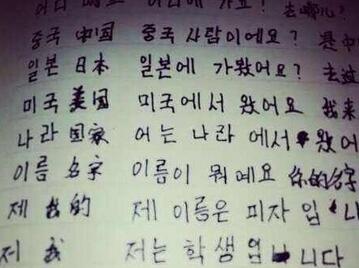 어디 에 가요? 去哪儿?
중국 中国 중국 사람이에요? 是中
일본 日本 일본에 가왔어요? 去过
미국 美国 미국에서 왔어요 我来
나라 国家 어는 나라 에서 왔어
이름 名字 이름이 뭐예요 你的名字
제 我的 제 이름은 피자 입 니
저 我 저는 학생 입 니다